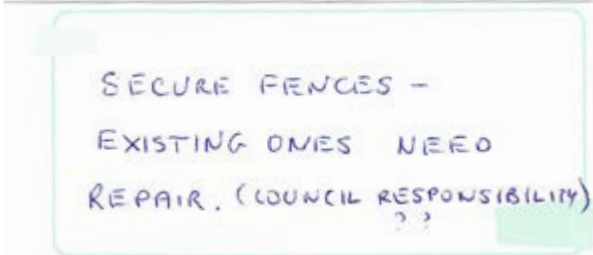 SECURE FENCES -
EXISTING ONES NEED
REPAIR. (COUNCIL RESPONSIBILITY)
??